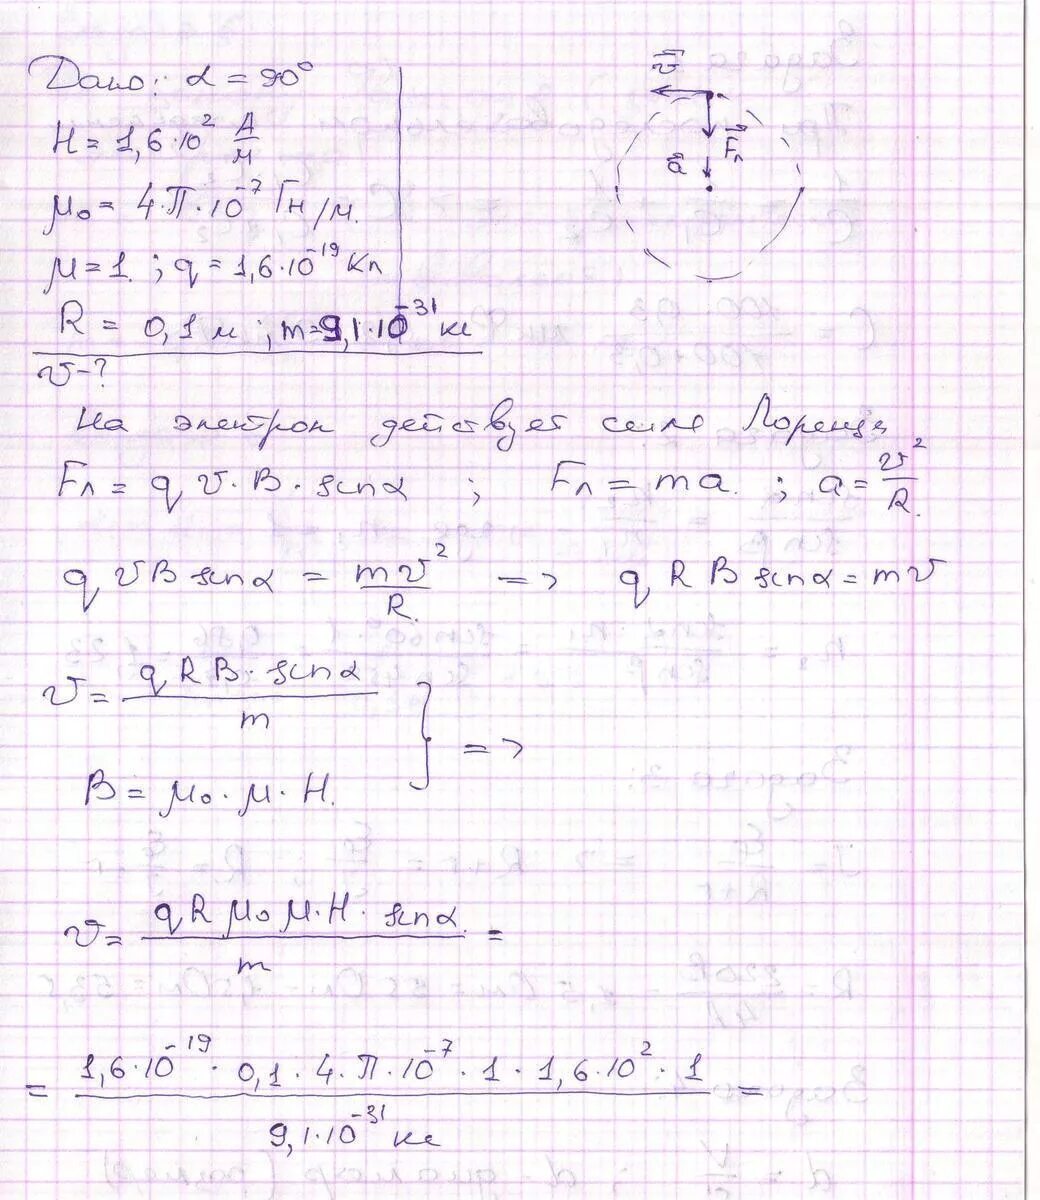 Дано: α = 90°
H = 1,6·10² А/м
μ₀ = 4·π·10⁻⁷ Гн/м.
μ = 1. ; q = 1,6·10⁻¹⁹ Кл
R = 0,1 м ; m = 9,1·10⁻³¹ кг
v - ?
v⃗
F⃗л
a⃗
На электрон действует сила Лоренца
Fл = q v · B · sin α ; Fл = ma. ; a = v²/R.
q v B sin α = mv²/R. => q R B sin α = mv
v = q R B · sin α / m
} =>
B = μ₀ · μ · H.
v = q R μ₀ μ · H · sin α. / m =
= 1,6·10⁻¹⁹ · 0,1 · 4 · π · 10⁻⁷ · 1 · 1,6·10² · 1 / 9,1·10⁻³¹ кг =